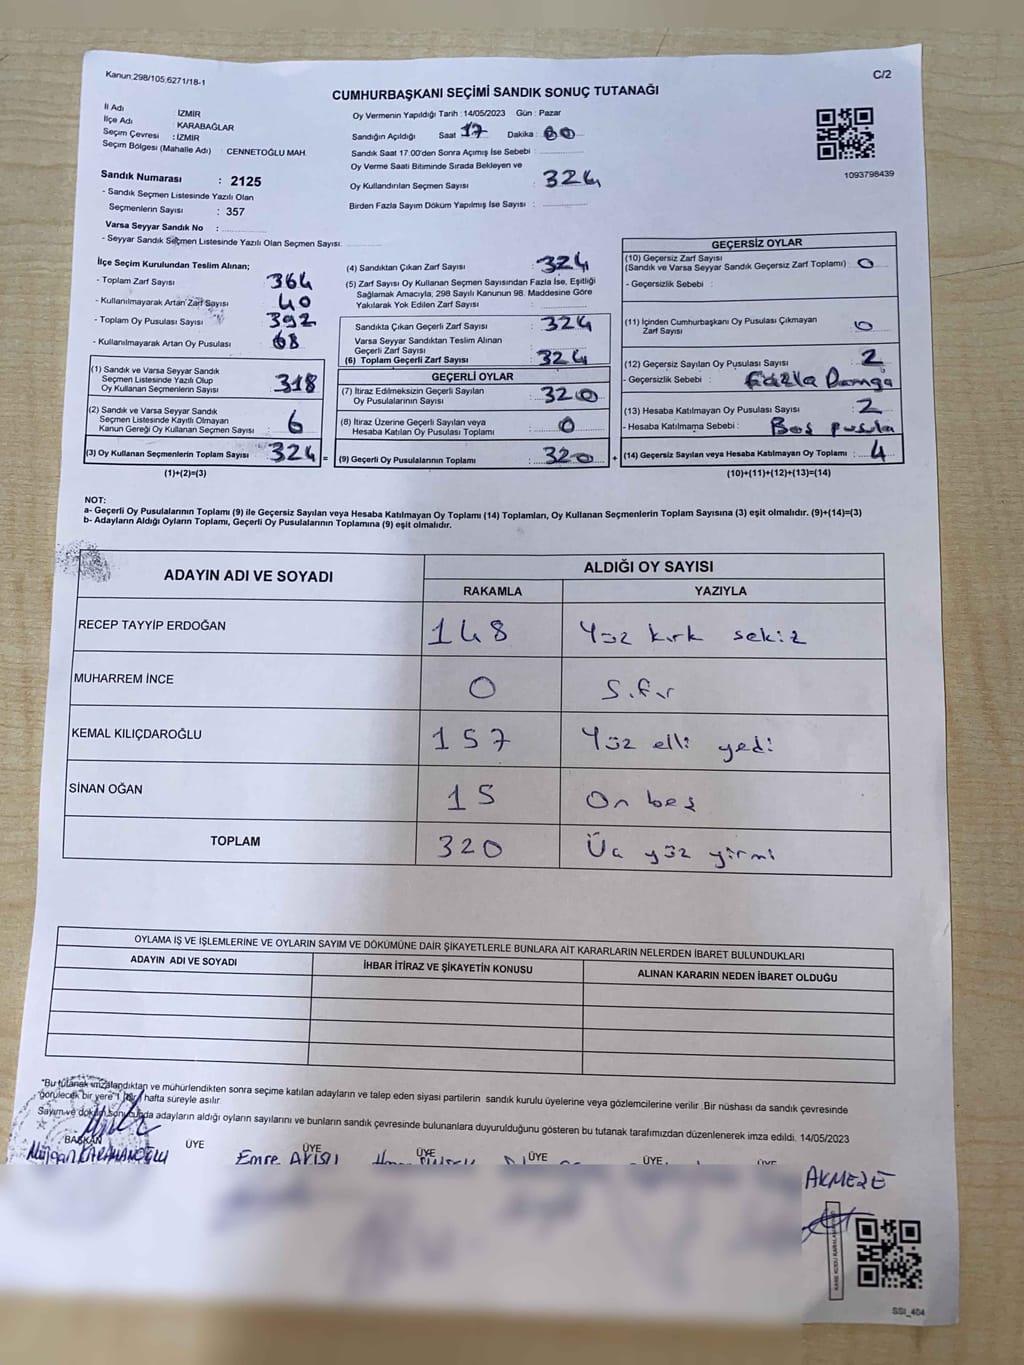 Kanun:298/105;6271/18-1
C/2
CUMHURBAŞKANI SEÇİMİ SANDIK SONUÇ TUTANAĞI
İl Adı : İZMİR
İlçe Adı : KARABAĞLAR
Seçim Çevresi : İZMİR
Seçim Bölgesi (Mahalle Adı) : CENNETOĞLU MAH.
Sandık Numarası : 2125
- Sandık Seçmen Listesinde Yazılı Olan
Seçmenlerin Sayısı : 357
Varsa Seyyar Sandık No :
- Seyyar Sandık Seçmen Listesinde Yazılı Olan Seçmen Sayısı:
Oy Vermenin Yapıldığı Tarih : 14/05/2023 Gün : Pazar
Sandığın Açıldığı Saat 17 Dakika : 00
Sandık Saat 17:00'den Sonra Açımış İse Sebebi :
Oy Verme Saati Bitiminde Sırada Bekleyen ve
Oy Kullandırılan Seçmen Sayısı : 324
Birden Fazla Sayım Döküm Yapılmış İse Sayısı :
1093798439
İlçe Seçim Kurulundan Teslim Alınan;
- Toplam Zarf Sayısı 364
- Kullanılmayarak Artan Zarf Sayısı 40
- Toplam Oy Pusulası Sayısı 392
- Kullanılmayarak Artan Oy Pusulası 68
(1) Sandık ve Varsa Seyyar Sandık
Seçmen Listesinde Yazılı Olup
Oy Kullanan Seçmenlerin Sayısı : 318
(2) Sandık ve Varsa Seyyar Sandık
Seçmen Listesinde Kayıtlı Olmayan
Kanun Gereği Oy Kullanan Seçmen Sayısı : 6
(3) Oy Kullanan Seçmenlerin Toplam Sayısı : 324 =
(1)+(2)=(3)
(4) Sandıktan Çıkan Zarf Sayısı : 324
(5) Zarf Sayısı Oy Kullanan Seçmen Sayısından Fazla İse, Eşitliği
Sağlamak Amacıyla, 298 Sayılı Kanunun 98. Maddesine Göre
Yakılarak Yok Edilen Zarf Sayısı :
Sandıkta Çıkan Geçerli Zarf Sayısı : 324
Varsa Seyyar Sandıktan Teslim Alınan
Geçerli Zarf Sayısı :
(6) Toplam Geçerli Zarf Sayısı : 324
GEÇERLİ OYLAR
(7) İtiraz Edilmeksizin Geçerli Sayılan
Oy Pusulalarının Sayısı : 320
(8) İtiraz Üzerine Geçerli Sayılan veya
Hesaba Katılan Oy Pusulası Toplamı : 0
(9) Geçerli Oy Pusulalarının Toplamı : 320 +
GEÇERSİZ OYLAR
(10) Geçersiz Zarf Sayısı
(Sandık ve Varsa Seyyar Sandık Geçersiz Zarf Toplamı) : 0
- Geçersizlik Sebebi :
(11) İçinden Cumhurbaşkanı Oy Pusulası Çıkmayan
Zarf Sayısı : 0
(12) Geçersiz Sayılan Oy Pusulası Sayısı : 2
- Geçersizlik Sebebi : Fazla Damga
(13) Hesaba Katılmayan Oy Pusulası Sayısı : 2
- Hesaba Katılmama Sebebi : Boş pusula
(14) Geçersiz Sayılan veya Hesaba Katılmayan Oy Toplamı : 4
(10)+(11)+(12)+(13)=(14)
NOT:
a- Geçerli Oy Pusulasının Toplamı (9) ile Geçersiz Sayılan veya Hesaba Katılmayan Oy Toplamı (14) Toplamları, Oy Kullanan Seçmenlerin Toplam Sayısına (3) eşit olmalıdır. (9)+(14)=(3)
b- Adayların Aldığı Oyların Toplamı, Geçerli Oy Pusulalarının Toplamına (9) eşit olmalıdır.
ADAYIN ADI VE SOYADI
ALDIĞI OY SAYISI
RAKAMLA YAZIYLA
RECEP TAYYİP ERDOĞAN 148 Yüz kırk sekiz
MUHARREM İNCE 0 Sıfır
KEMAL KILIÇDAROĞLU 157 Yüz elli yedi
SİNAN OĞAN 15 On beş
TOPLAM 320 Üç yüz yirmi
OYLAMA İŞ VE İŞLEMLERİNE VE OYLARIN SAYIM VE DÖKÜMÜNE DAİR ŞİKAYETLERLE BUNLARA AİT KARARLARIN NELERDEN İBARET BULUNDUKLARI
ADAYIN ADI VE SOYADI
İHBAR İTİRAZ VE ŞİKAYETİN KONUSU
ALINAN KARARIN NEDEN İBARET OLDUĞU
"Bu tutanak imzalandıktan ve mühürlendikten sonra seçime katılan adayların ve talep eden siyasi partilerin sandık kurulu üyelerine veya gözlemcilerine verilir .Bir nüshası da sandık çevresinde
görülecek bir yere 1 (Bir) hafta süreyle asılır.
Sayım ve döküm sonucunda adayların aldığı oyların sayılarını ve bunların sandık çevresinde bulunanlara duyurulduğunu gösteren bu tutanak tarafımızdan düzenlenerek imza edildi. 14/05/2023
BAŞKAN ÜYE ÜYE ÜYE ÜYE ÜYE ÜYE
Müjgan KARAHANOĞLU
Emre
AKMEZE
SSI_404